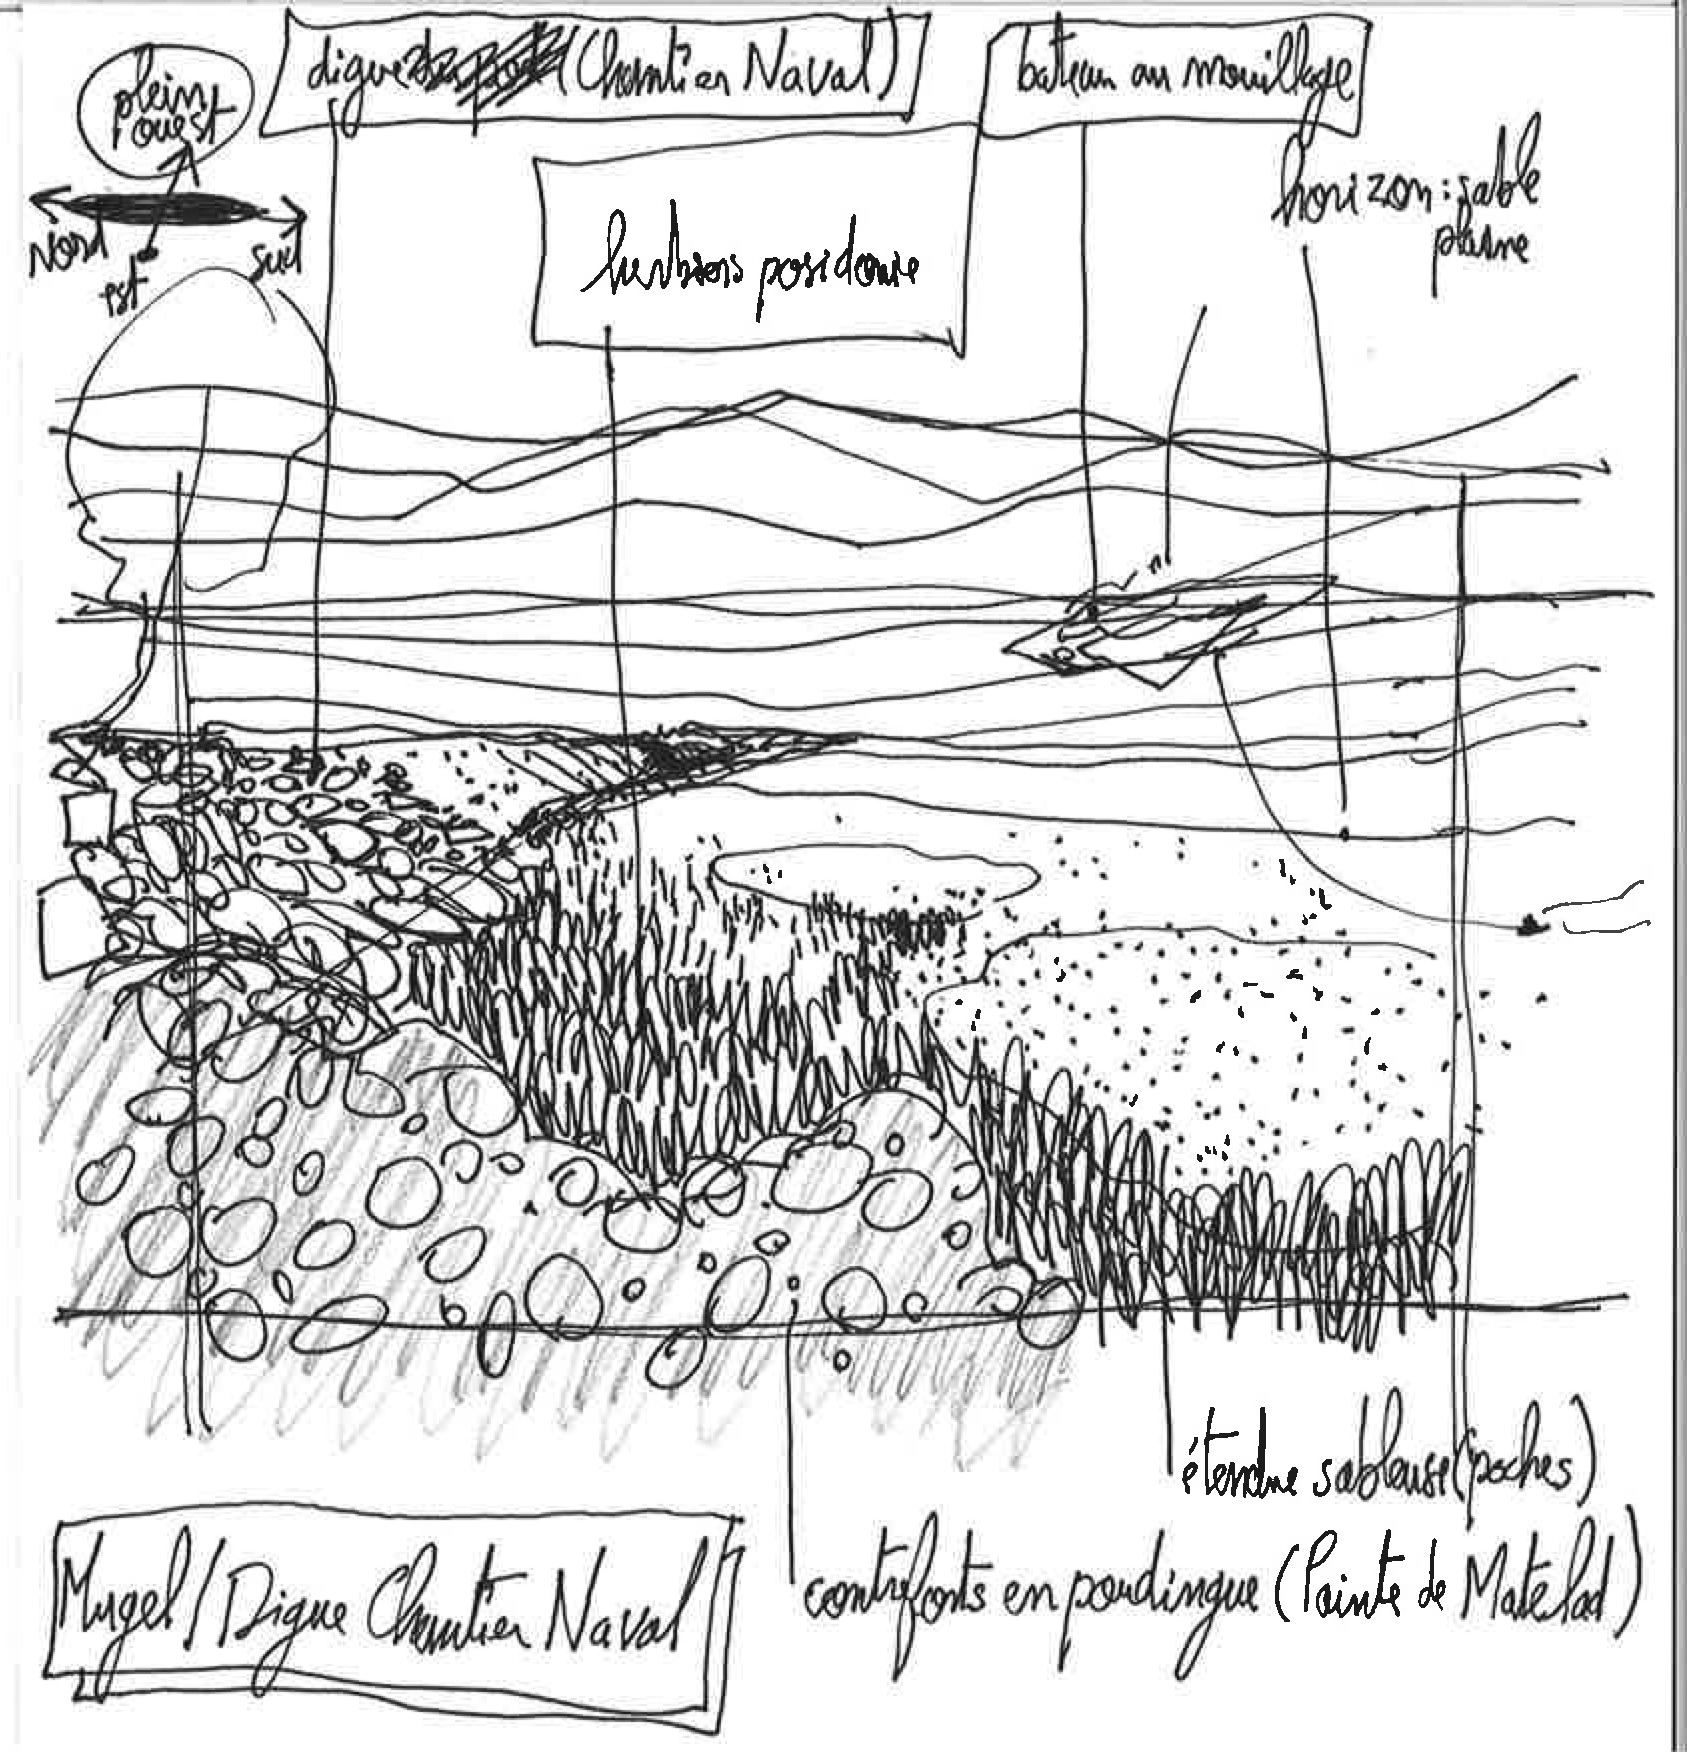 plein
ouest
digue (Chantier Naval)
bateau au mouillage
Nord
est
sud
herbiers posidonie
horizon : sable
plaine
étendue sableuse (poches)
contreforts en poudingue (Pointe de Matelad)
Mugel / Digue Chantier Naval